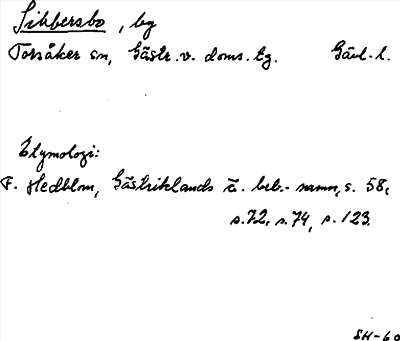 Sikbersbo, by
Torsåker sn, Gästr. v. doms. tg. Gävl. l.
Etymologi:
F. Hedblom, Gästriklands ä. beb.-namn, s. 58,
s. 72, s. 74, s. 123.
SH-60